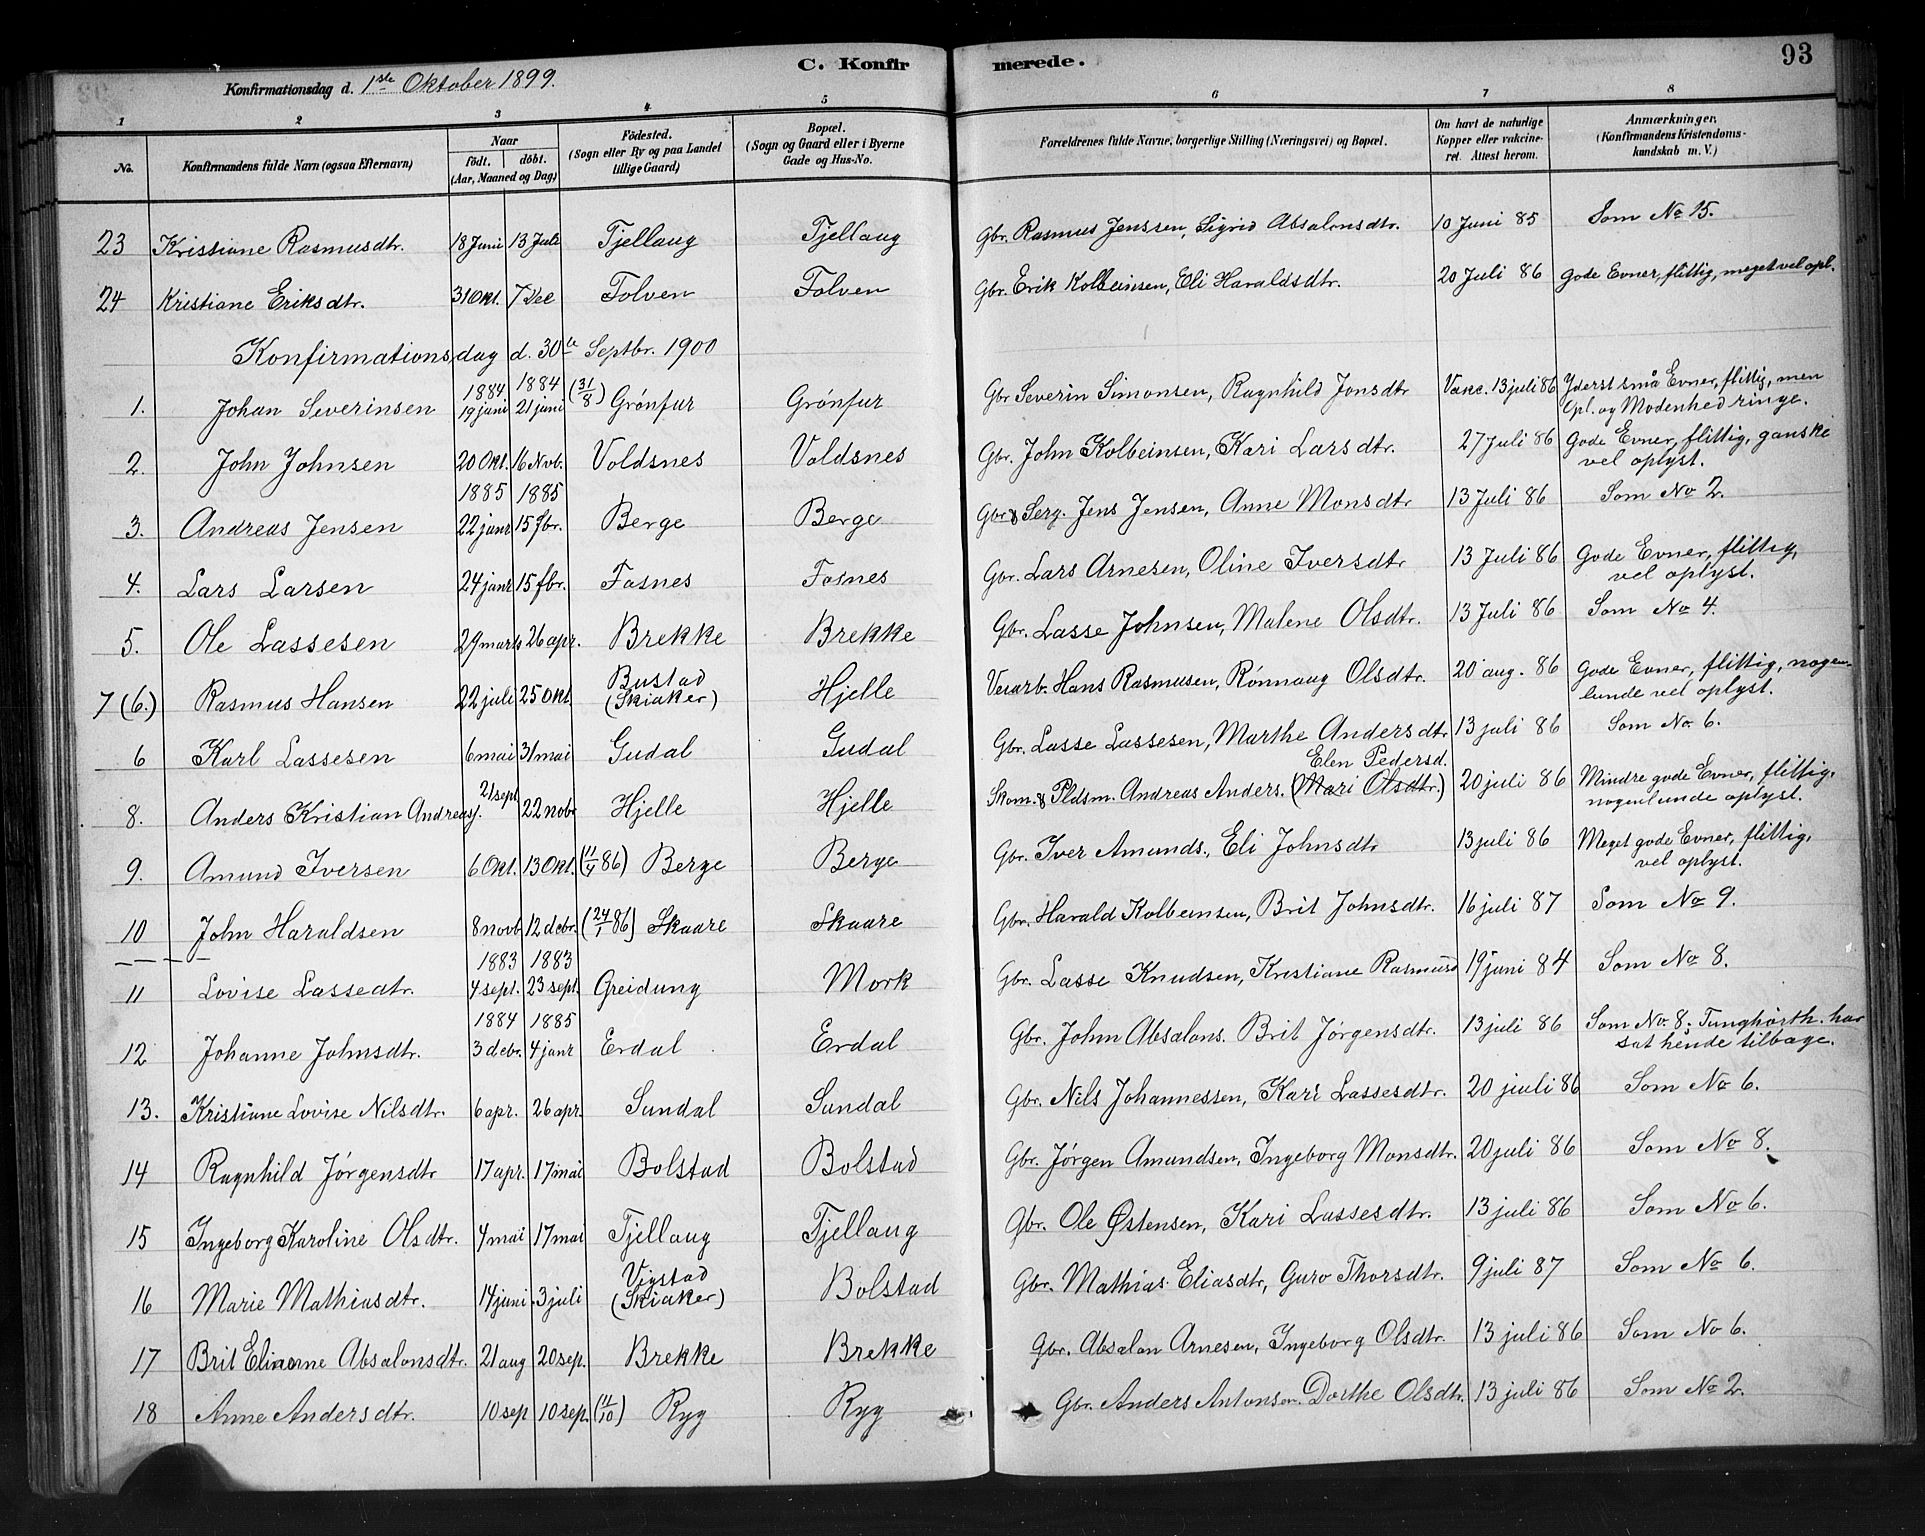 C. Konfirmerede.
93
Konfirmationsdag d. 1ste Oktober 1899.
1 2 3 4 5 6 7 8
No. | Konfirmandens fulde Navn (ogsaa Efternavn) | Naar født. døbt. (Aar, Maaned og Dag) | Födested. (Sogn eller By og paa Landet tillige Gaard) | Bopæl. (Sogn og Gaard eller i Byerne Gade og Hus-No.) | Forældrenes fulde Navne, borgerlige Stilling (Næringsvei) og Bopæl. | Om havt de naturlige Kopper eller vakcineret. Attest herom. | Anmærkninger. (Konfirmandens Kristendomskundskab m. V.)
23 Kristiane Rasmusdtr. 18 Juni 13 Juli Tjellaug Tjellaug Gbr. Rasmus Jenssen, Sigrid Absalonsdtr. 10 Juni 85 Som No 15.
24 Kristiane Eriksdtr. 31 Okt. 7 Dec Tolven Tolven Gbr. Erik Kolbeinsen, Eli Haraldsdtr. 20 Juli 86 Gode Evner, flittig, meget vel opl.
Konfirmationsdag d. 30te Septbr. 1900
1884 1884
1. Johan Severinsen 19 juni 21 juni (31/8) Grónfur Grónfur Gbr Severin Simonsen, Ragnhild Jonsdtr Vakc. 13 juli 86 Yderst små Evner, flittig, men
Opl. og Modenhed ringe.
2. John Johnsen 20 Okt. 16 Nvb. Voldsnes Voldsnes Gbr. John Kolbeinsen, Kari Larsdtr. 27 Juli 86 Gode Evner, flittig, ganske
vel oplyst.
1885 1885
3. Andreas Jensen 22 janr 15 fbr. Berge Berge Gbr & Serg. Jens Jensen, Anne Monsdtr 13 Juli 86 Som No 2.
4. Lars Larsen 24 janr 15 fbr. Fosnes Fosnes Gbr. Lars Arnesen, Oline Iversdtr 13 Juli 86 Gode Evner, flittig,
vel oplyst.
5. Ole Lassesen 29 marts 26 apr. Brekke Brekke Gbr. Lasse Johnsen, Malene Olsdtr. 13 Juli 86 Som No 4.
7 (6.) Rasmus Hansen 22 juli 25 Okt. Bustad
(Skiaker) Hjelle Veiarb. Hans Rasmusen, Rónnaug Olsdtr. 20 aug. 86 Gode Evner, flittig, nogen-
lunde vel oplyst.
6 Karl Lassesen 6 mai 31 mai Gudal Gudal Gbr. Lasse Lassesen, Marthe Andersdtr 13 juli 86 Som No 6.
Elen Pedersd.
8. Anders Kristian Andreasj. 21 sept 22 nobr Hjelle Hjelle Skom. & Pldsm. Andreas Anders. (Mari Olsdtr.) 20 juli 86 Mindre gode Evner, flittig,
nogenlunde oplyst.
9. Amund Iversen 6 Okt. 13 Okt. (11/4 86) Berge Berge Gbr. Iver Amunds., Eli Johnsdtr 13 juli 86 Meget gode Evner, flittig,
vel oplyst.
10 John Haraldsen 8 novb 12 debr. (24/1 86) Skaare Skaare Gbr. Harald Kolbeinsen, Brit Johnsdtr. 16 juli 87 Som No 9.
1883 1883
11 Lovise Lassedtr. 4 sept. 23 sept. Greidung Mork Gbr. Lasse Knudsen, Kristiane Rasmusd 19 juni 84 Som No 8.
1884 1885
12 Johanne Johnsdtr. 3 debr. 4 janr Erdal Erdal Gbr. John Absalons. Brit Jørgensdtr. 13 juli 86 Som No. 8; Tunghørth. har
sat hende tilbage.
13. Kristiane Lovise Nilsdtr. 6 apr. 26 apr. Sundal Sundal Gbr. Nils Johannessen, Kari Lassesdtr. 20 juli 86 Som No 6.
14 Ragnhild Jørgensdtr 17 apr. 17 mai Bolstad Bolstad Gbr. Jørgen Amundsen, Ingeborg Monsdtr. 20 juli 86 Som No 8.
15 Ingeborg Karoline Olsdtr. 4 mai 17 mai Tjellaug Tjellaug Gbr. Ole Østensen, Kari Lassesdtr. 13 juli 86 Som No 6.
16 Marie Mathiasdtr. 14 juni 3 juli Vigstad
(Skiaker) Bolstad Gbr. Mathias Eliasdtr, Guro Thorsdtr. 9 juli 87 Som No 6.
17 Brit Elianne Absalonsdtr. 21 aug 20 sep. Brekke Brekke Gbr. Absalon Arnesen, Ingeborg Olsdtr. 13 juli 86 Som No 6.
18 Anne Andersdtr. 10 sep 10 sep. (11/10) Ryg Ryg Gbr. Anders Antonsen. Dorthe Olsdtr. 13 juli 86 Som No 2.